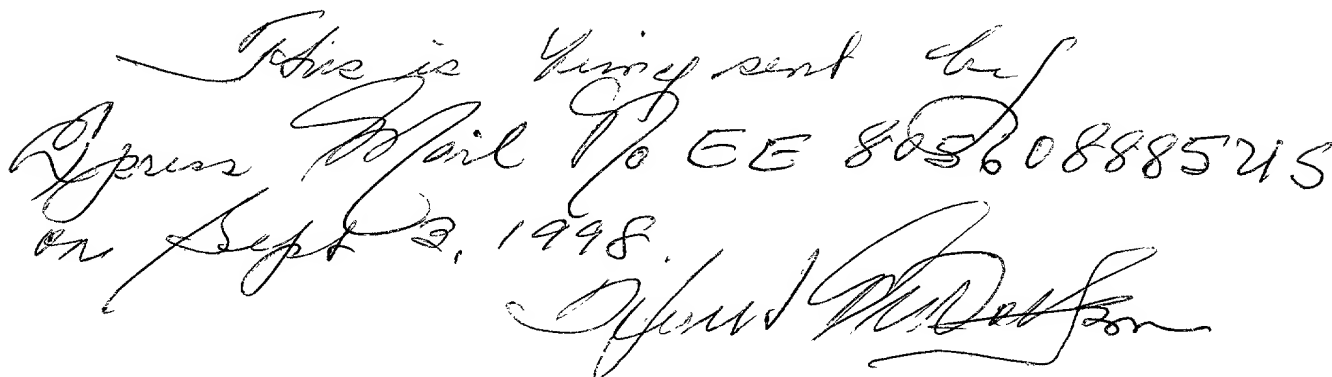 This is being sent by
Express Mail No EE 805608885US
on Sept 2, 1998.